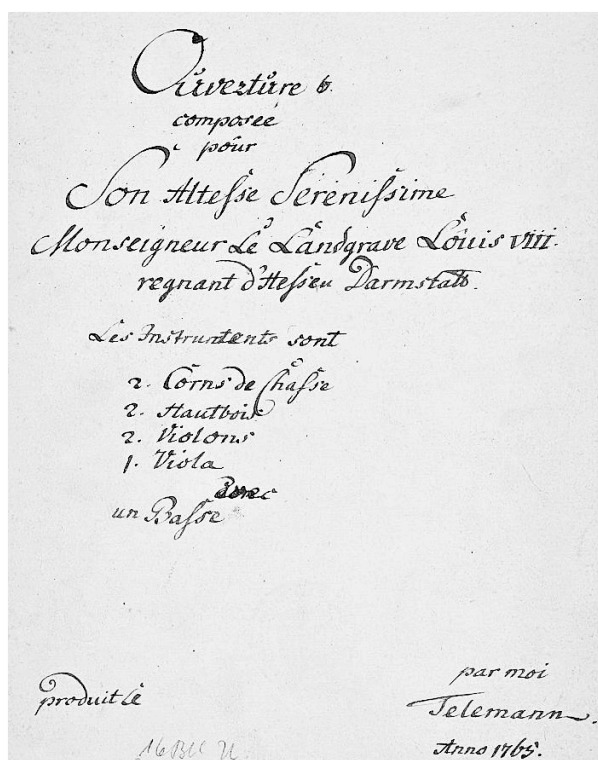 Ouverture
composée
pour
Son Altesse Serenissime
Monseigneur Le Landgrave Louis VIII.
regnant d'Hesseu Darmstatt.
Les Instruments sont
2. Corns de Chasse
2. Hautbois
2. Violons
1. Viola
avec
un Basse
produit le
par moi
Telemann
Anno 1765.